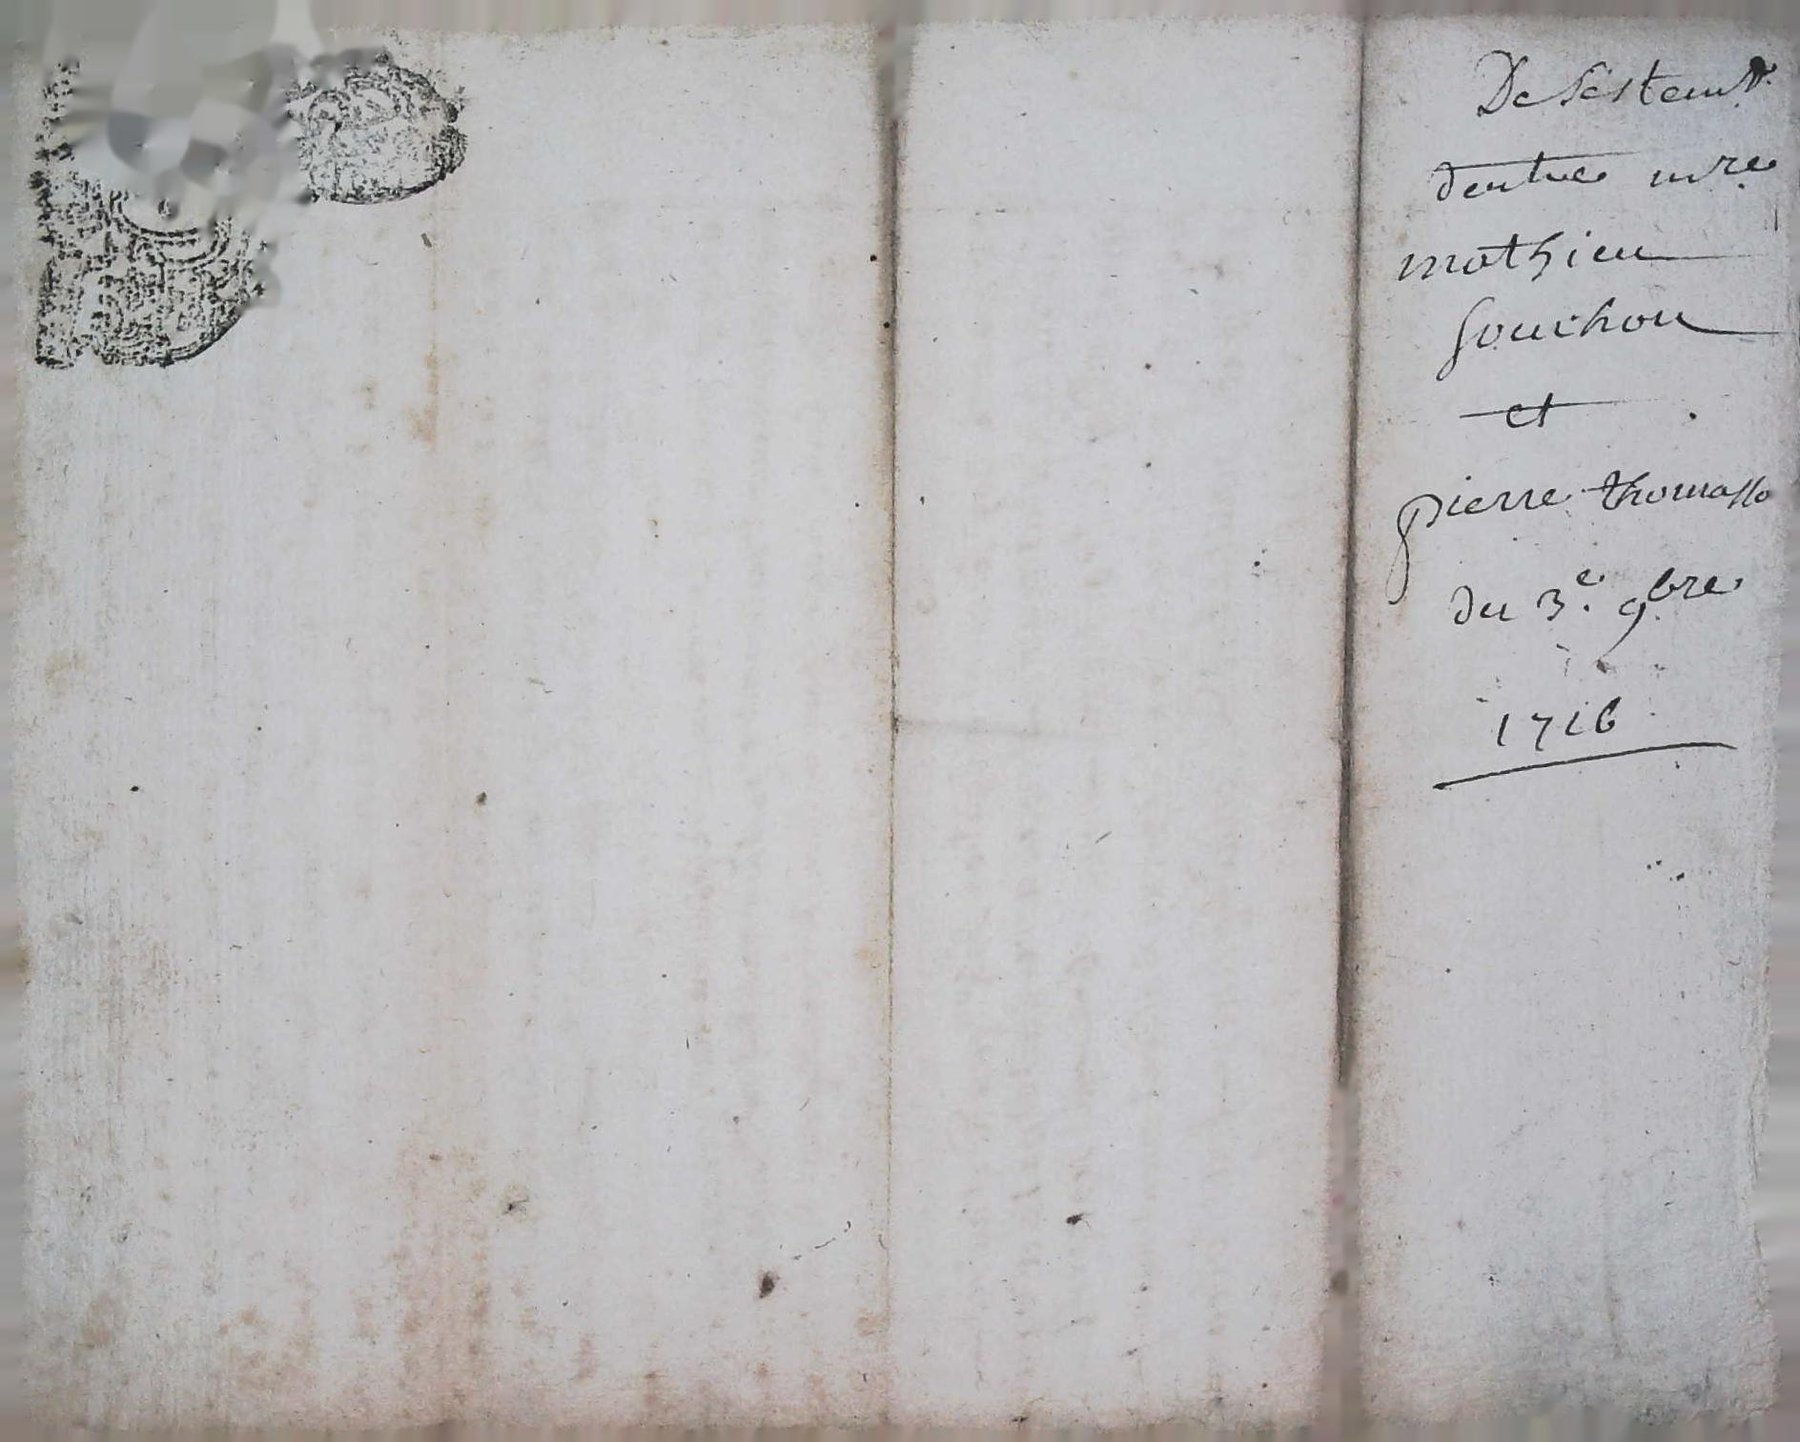 Desistemt.
dentre mre
mathieu
souchon
et
pierre thomasso
du 3e. 9bre
1716